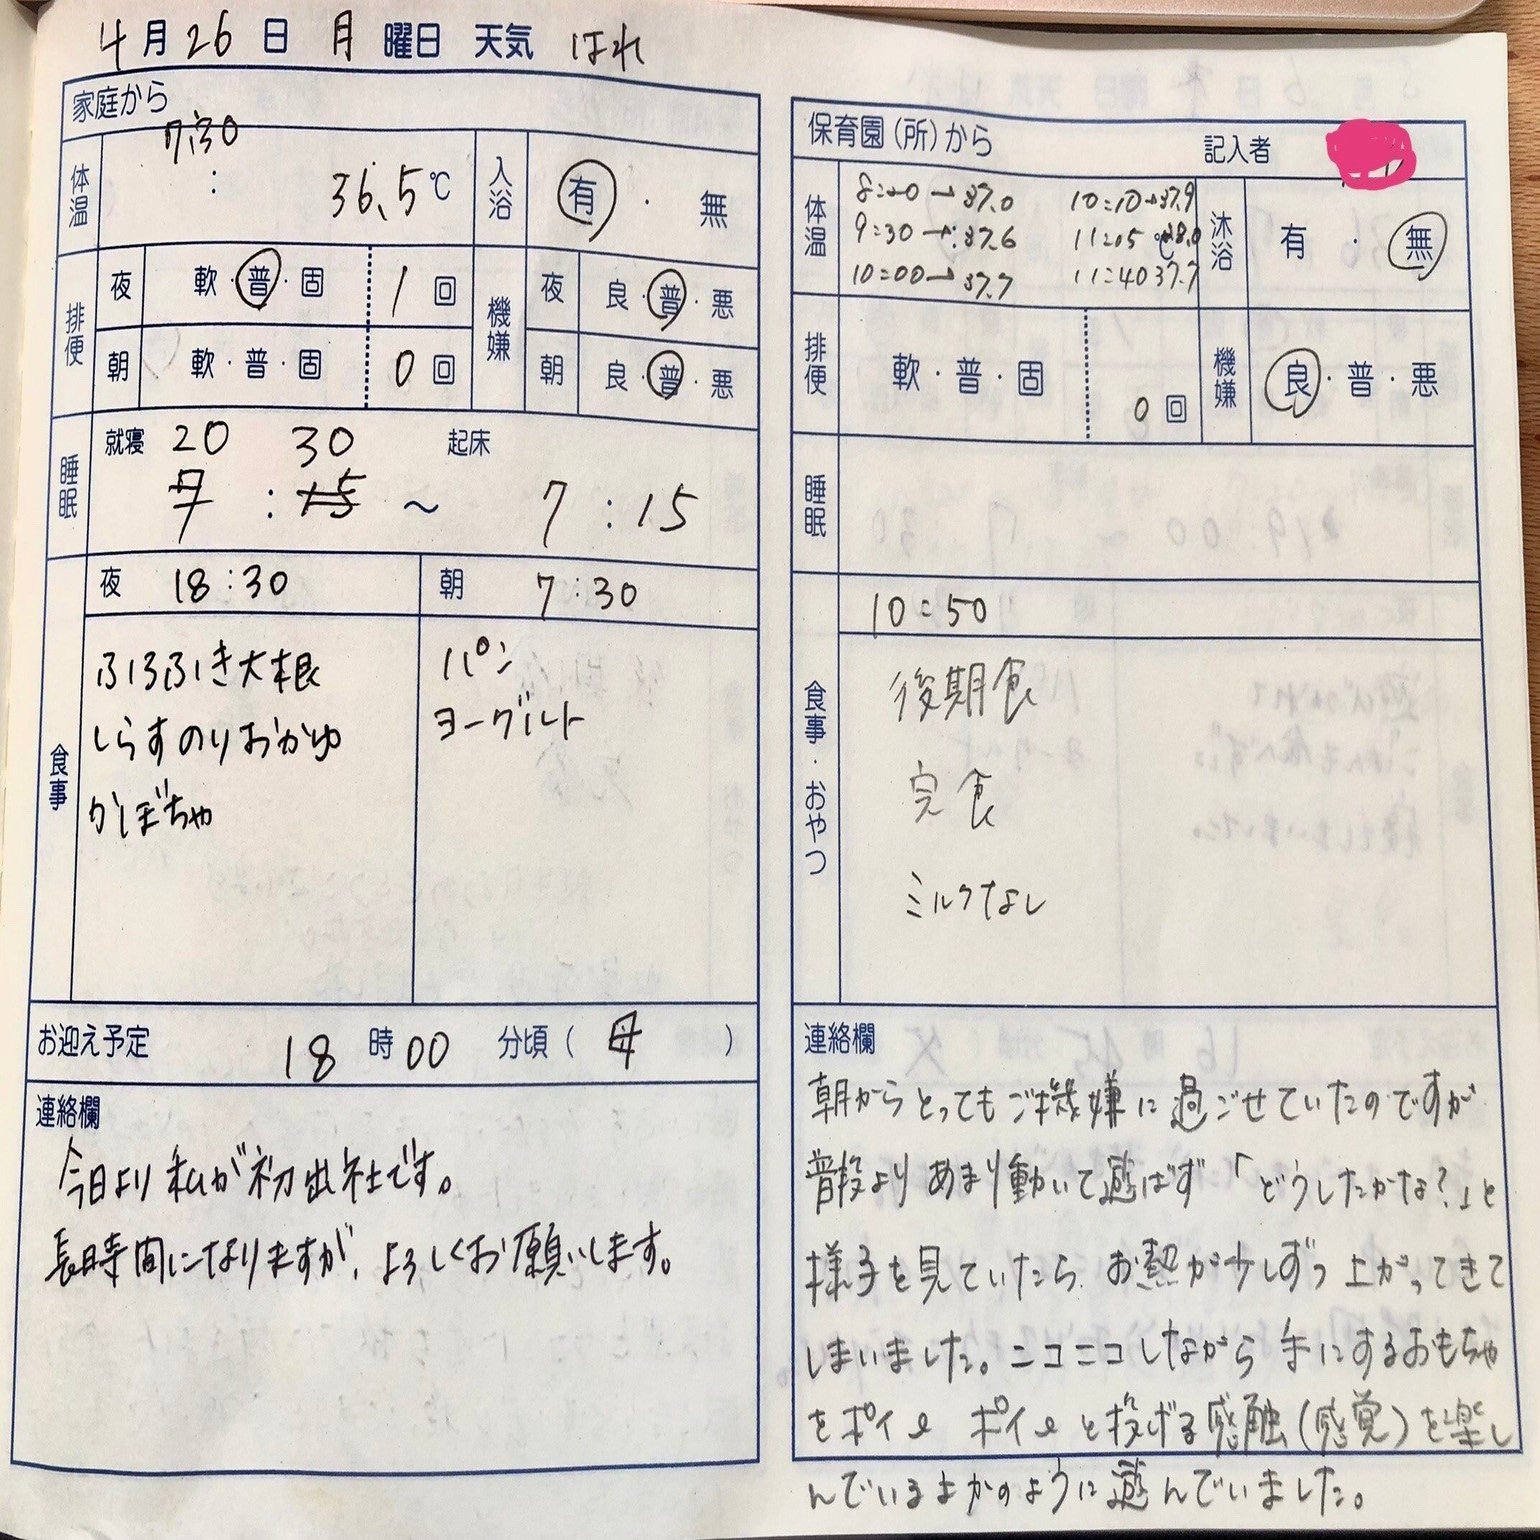 4月26日 月曜日 天気 はれ
家庭から
体温 7:30 : 36.5℃
入浴 有・無
排便 夜 軟・普・固 1回
機嫌 夜 良・普・悪
朝 軟・普・固 0回
朝 良・普・悪
睡眠 就寝 20 30 起床
: ~ 7:15
食事 夜 18:30 朝 7:30
ふろふき大根
しらすのりおかゆ
かぼちゃ
パン
ヨーグルト
お迎え予定 18時00分頃(母)
連絡欄
今日より私が初出社です。
長時間になりますが、よろしくお願いします。
保育園(所)から 記入者
体温 8:20→37.0 10:10→37.9
9:30→37.6 11:05 38.0
10:00→37.7 11:40 37.7
℃
沐浴 有・無
排便 軟・普・固 0回
機嫌 良・普・悪
睡眠
食事・おやつ 10:50
後期食
完食
ミルクなし
連絡欄
朝からとってもご機嫌に過ごせていたのですが
普段よりあまり動いて遊ばず「どうしたかな?」と
様子を見ていたら、お熱が少しずつ上がってきて
しまいました。ニコニコしながら手にするおもちゃ
をポイッ ポイッと投げる感触(感覚)を楽し
んでいるかのように遊んでいました。